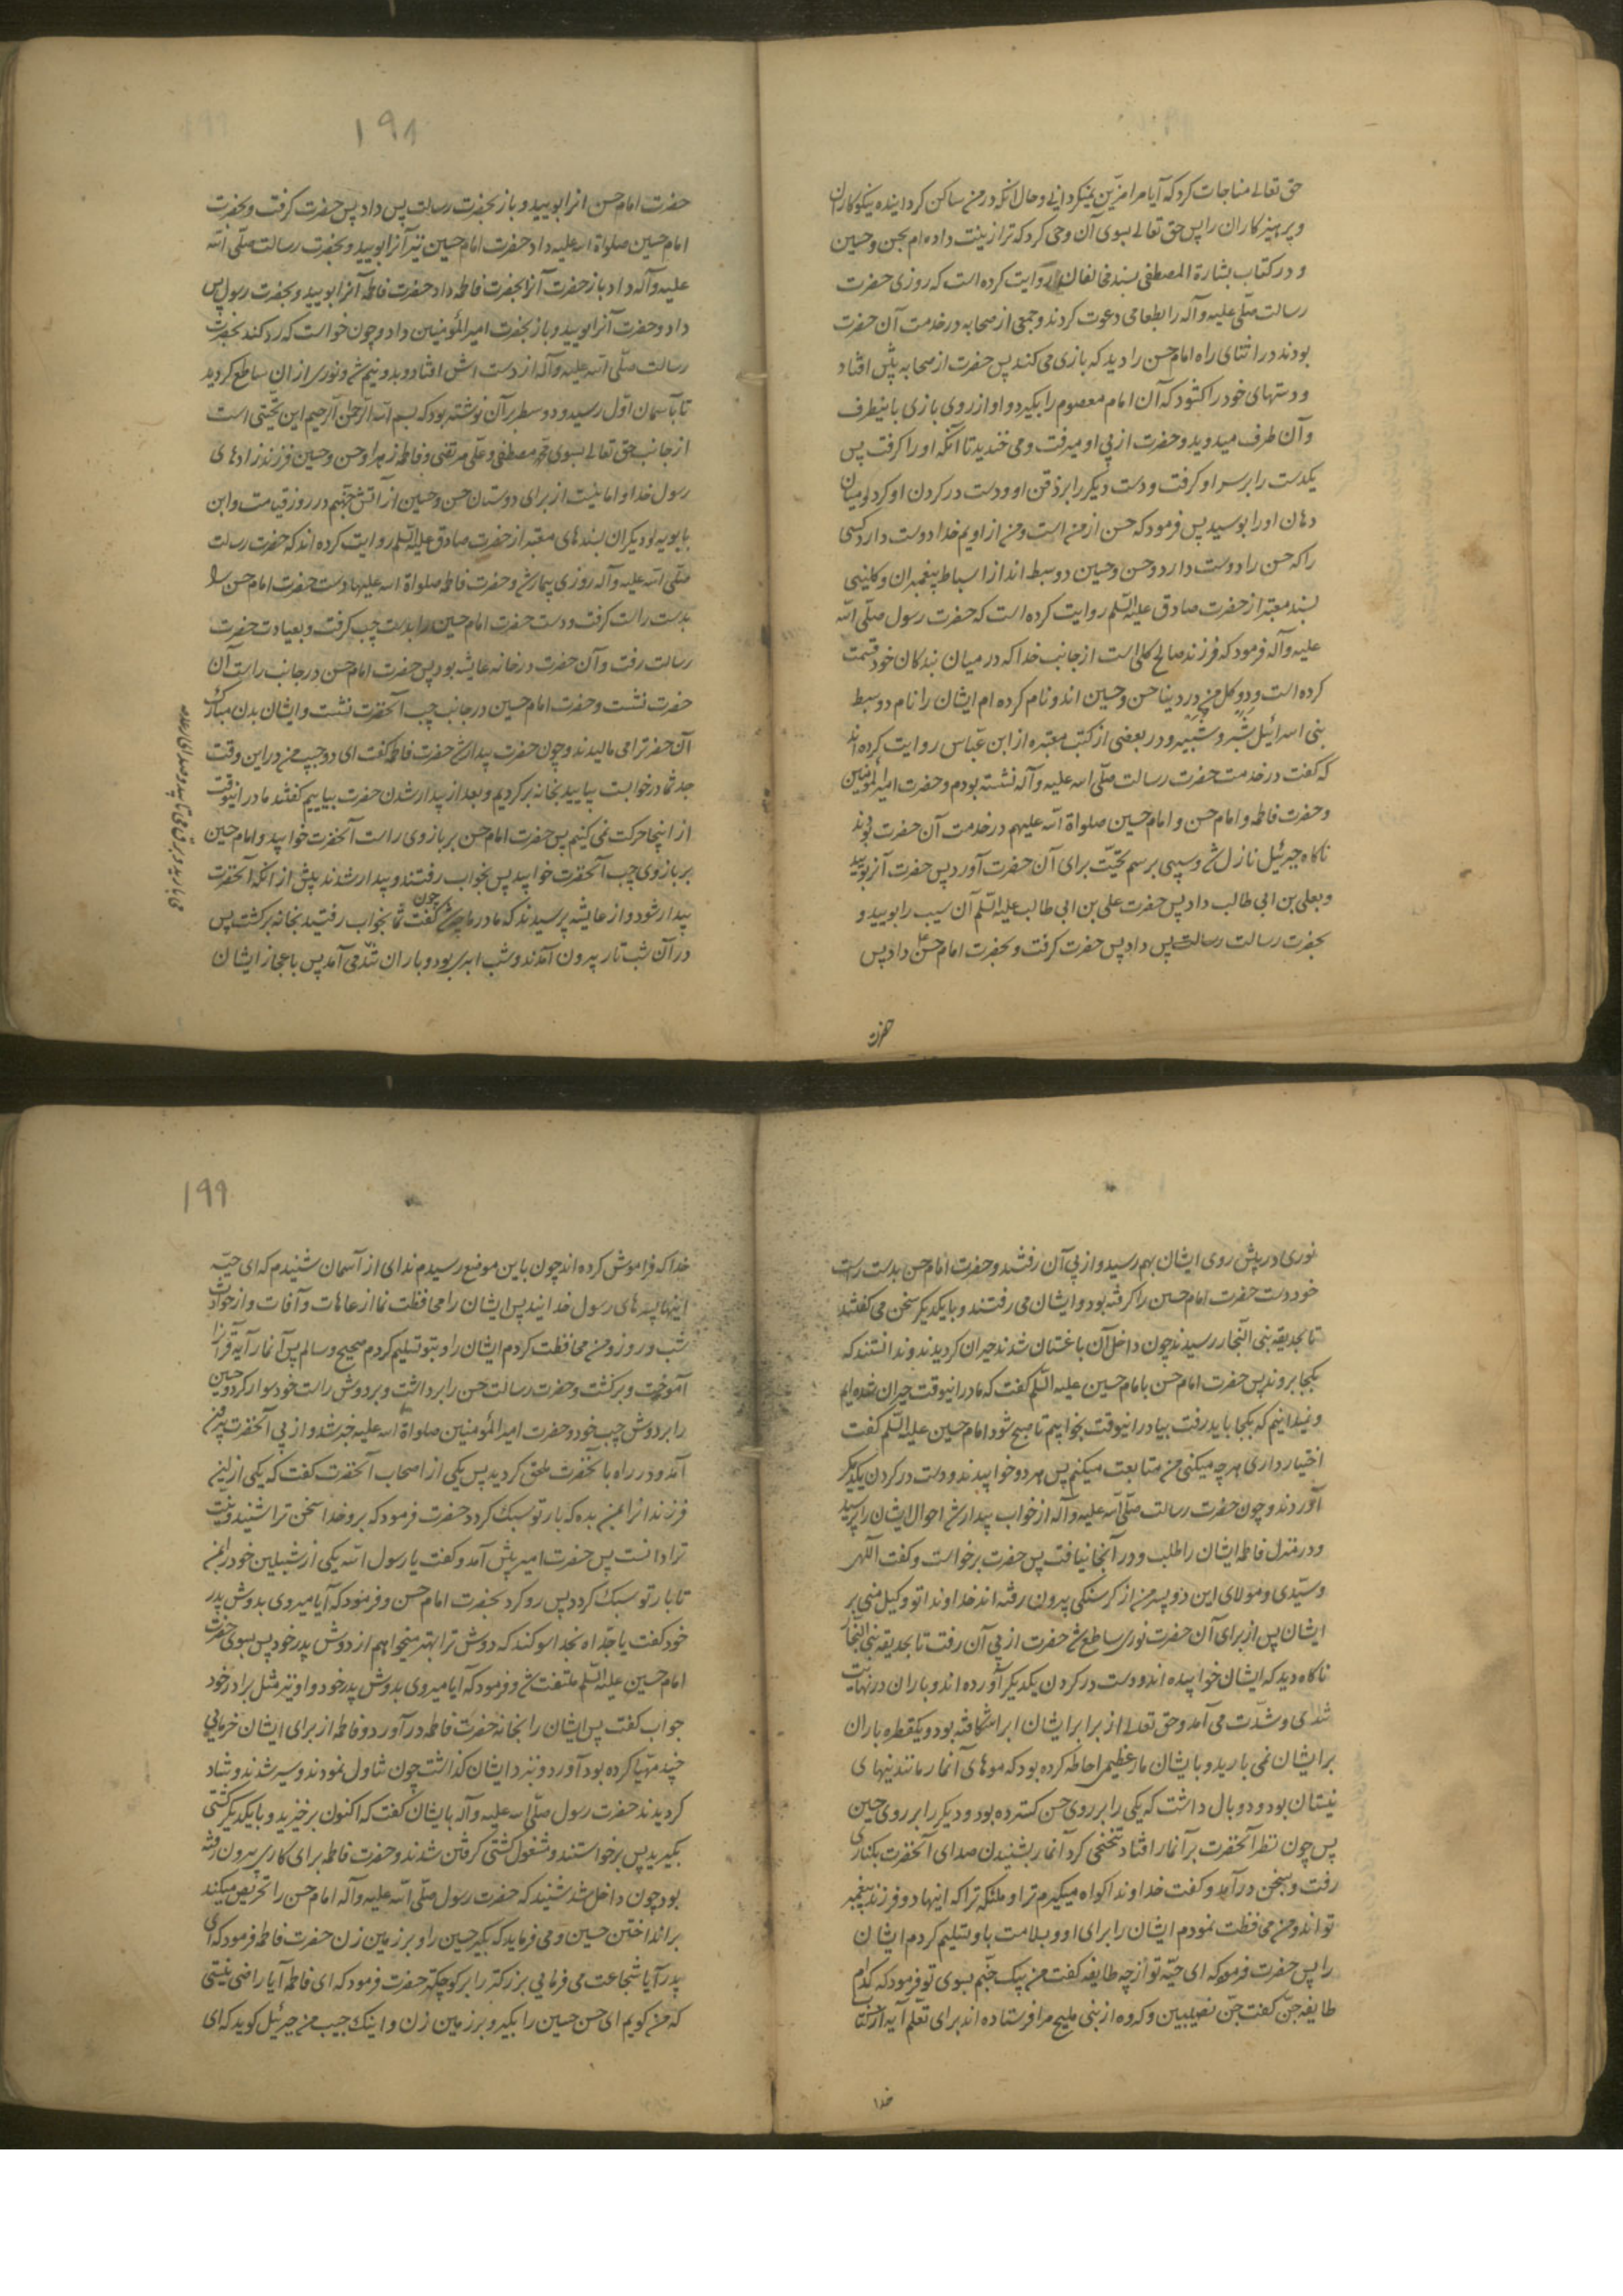 حق تعالی مناجات کرد که آیا مرا مزین نمیکردانی و حال آنکه در من ساکن کردانیده نیکوکاران
و پرهیزکاران را پس حق تعالی بسوی آن وحی کرد که ترا زینت داده ام بحسن و حسین
و در کتاب بشارة المصطفی بسند مخالفان روایت کرده است که روزی حضرت
رسالت صلّی علیه و آله را بطعامی دعوت کردند و جمعی از صحابه در خدمت آن حضرت
بودند در اثنای راه امام حسن را دید که بازی می کند پس حضرت از صحابه پیش افتاد
و دستهای خود را کشود که آن امام معصوم را بکیرد و او از روی بازی باینطرف
و آن طرف میدوید و حضرت از پی او میرفت و می خندید تا آنکه او را کرفت پس
یکدست را بر سر او کرفت و دست دیکر را بر ذقن او و دست در کردن او کرد و میان
دهان او را بوسید پس فرمود که حسن از من است و من از اویم خدا دوست دارد کسی
را که حسن را دوست دارد و حسن و حسین دو سبط اند از اسباط پیغمبران و کلینی
بسند معتبر از حضرت صادق علیه السّلم روایت کرده است که حضرت رسول صلّی الله
علیه و آله فرمود که فرزند صالح کلی است از جانب خدا که در میان بندکان خود قسمت
کرده است و دو کل من در دنیا حسن و حسین اند و نام کرده ام ایشان را نام دو سبط
بنی اسرائیل شبّر و شبیر و در بعضی از کتب معتبره از ابن عبّاس روایت کرده اند
که کفت در خدمت حضرت رسالت صلّی الله علیه و آله نشسته بودم و حضرت امیر المؤمنین
و حضرت فاطمه و امام حسن و امام حسین صلواة الله علیهم در خدمت آن حضرت بودند
ناکاه جبرئیل نازل شد و سیبی برسم تحیّت برای آن حضرت آورد پس حضرت آنرا بویید
و بعلی بن ابی طالب داد پس حضرت علی بن ابی طالب علیه السّلم آن سیب را بویید و
بحضرت رسالت رسالت پس داد پس حضرت کرفت و بحضرت امام حسن داد پس
حضرت
۱۹۸
حضرت امام حسن انرا بویید و باز بحضرت رسالت پس داد پس حضرت کرفت و بحضرت
امام حسین صلواة الله علیه داد حضرت امام حسین نیز آنرا بویید و بحضرت رسالت صلّی الله
علیه و آله داد باز حضرت آنرا بحضرت فاطمه داد حضرت فاطمه آنرا بویید و بحضرت رسول پس
داد و حضرت آنرا بویید و باز بحضرت امیر المؤمنین داد و چون خواست که رد کند بحضرت
رسالت صلّی الله علیه و آله از دست اش افتاد و بدو نیم شد و نوری از ان ساطع کردید
تا بآسمان اوّل رسید و دو سطر بر آن نوشته بود که بسم الله الرّحمن الرّحیم این تحیّتی است
از جانب حق تعالی بسوی محمّد مصطفی و علی مرتضی و فاطمه زهرا و حسن و حسین فرزند زادهای
رسول خدا و امانیست از برای دوستان حسن و حسین از آتش جهنّم در روز قیامت و ابن
بابویه و دیکران بسندهای معتبر از حضرت صادق علیه السّلم روایت کرده اند که حضرت رسالت
صلّی الله علیه و آله روزی بیمار شد و حضرت فاطمه صلواة الله علیها دست حضرت امام حسن را
بدست راست کرفت و دست حضرت امام حسین را بدست چپ کرفت و بعیادت حضرت
رسالت رفت و آن حضرت در خانه عایشه بود پس حضرت امام حسن در جانب راست آن
حضرت نشست و حضرت امام حسین در جانب چپ آنحضرت نشست و ایشان بدن مبارک
آن حضرت را می مالیدند و چون حضرت بیدار نشد حضرت فاطمه کفت ای دو حبیب من در این وقت
جد شما در خوابست بیایید بخانه برکردیم و بعد از بیدار شدن حضرت بیاییم کفتند ما در اینوقت
از اینجا حرکت نمی کنیم پس حضرت امام حسن بر بازوی راست آنحضرت خوابید و امام حسین
بر بازوی چپ آنحضرت خوابید پس بخواب رفتند و بیدار شدند پیش از آنکه آنحضرت
بیدار شود و از عایشه پرسیدند که مادر ما چه شد کفت چون شما بخواب رفتید بخانه برکشت پس
در آن شب تار بیرون آمدند و شب ابری بود و باران تند می آمد پس باعجاز ایشان
می بارید و برق می تابید و صدای رعد
نوری در پیش روی ایشان بهم رسید و از پی آن رفتند و حضرت امام حسن بدست راست
خود دست حضرت امام حسین را کرفته بود و ایشان می رفتند و با یکدیکر سخن می کفتند
تا بحدیقه بنی النّجار رسیدند چون داخل آن باغستان شدند حیران کردیدند و ندانستند که
بکجا بروند پس حضرت امام حسن با امام حسین علیه السّلم کفت که ما در اینوقت حیران شده ایم
و نمیدانیم که بکجا باید رفت بیا در اینوقت بخوابیم تا صبح شود امام حسین علیه السّلم کفت
اختیار داری هرچه میکنی من متابعت میکنم پس هر دو خوابیدند و دست در کردن یکدیکر
آوردند و چون حضرت رسالت صلّی الله علیه و آله از خواب بیدار شد احوال ایشان را پرسید
و در منزل فاطمه ایشان را طلبید و در آنجا نیافت پس حضرت برخواست و کفت اللّهم
و سیّدی و مولای این دو پسر من از کرسنکی بیرون رفته اند خداوندا تو وکیل منی بر
ایشان پس از برای آن حضرت نوری ساطع شد حضرت از پی آن رفت تا بحدیقه بنی النّجار
ناکاه دید که ایشان خوابیده اند و دست در کردن یکدیکر آورده اند و باران در نهایت
تندی و شدّت می آمد و حق تعالی از برابر ایشان ابر را شکافته بود و یکقطره باران
بر ایشان نمی بارید و بایشان مار عظیمی احاطه کرده بود که موهای آنمار مانند نیهای
نیستان بود و دو بال داشت که یکی را بر روی حسن کسترده بود و دیکر را بر روی حسین
پس چون نظر آنحضرت بر آنمار افتاد تنحنحی کرد آنمار بشنیدن صدای آنحضرت بکناری
رفت و بسخن در آمد و کفت خداوندا کواه میکیرم ترا و ملئکه ترا که اینها دو فرزند پیغمبر
تو اند و من محافظت نمودم ایشان را برای او و بسلامت باو تسلیم کردم ایشان
را پس حضرت فرمود که ای حیّه تو از چه طایفه کفت من پیک جنّم بسوی تو فرمود که کدام
طایفه جن کفت جنّ نصیبین و کروه از بنی ملیح مرا فرستاده اند برای تعلّم آیه از کتاب
خدا
۱۹۹
خدا که فراموش کرده اند چون باین موضع رسیدم ندای از آسمان شنیدم که ای حیّه
اینها پسرهای رسول خدا یند پس ایشان را محافظت نما از عاهات و آفات و از حوادث
شب و روز و من محافظت کردم ایشان را و بتو تسلیم کردم صحیح و سالم پس آنمار آیه قرآنرا
آموخت و برکشت و حضرت رسالت حسن را برداشت و بر دوش راست خود سوار کرد و حسین
را بر دوش چپ خود و حضرت امیر المؤمنین صلواة الله علیه خبر شد و از پی آنحضرت بیرون
آمد و در راه بآنحضرت ملحق کردید پس یکی از اصحاب آنحضرت کفت که یکی از این
فرزندانرا بمن بده که بار تو سبک کردد حضرت فرمود که برو خدا سخن ترا شنید و نیت
ترا دانست پس حضرت امیر پیش آمد و کفت یا رسول الله یکی از شبلین خود را بمن
تا بار تو سبک کردد پس رو کرد بحضرت امام حسن و فرمود که آیا میروی بدوش پدر
خود کفت یا جدّاه بخدا سوکند که دوش ترا بهتر میخواهم از دوش پدر خود پس بسوی حضرت
امام حسین علیه السّلم ملتفت شد و فرمود که آیا میروی بدوش پدر خود و او نیز مثل برادر خود
جواب کفت پس ایشان را بخانه حضرت فاطمه در آورد و فاطمه از برای ایشان خرمایی
چند مهیّا کرده بود آورد و نزد ایشان کذاشت چون تناول نمودند و سیر شدند و شاد
کردیدند حضرت رسول صلّی الله علیه و آله بایشان کفت که اکنون برخیزید و با یکدیکر کشتی
بکیرید پس برخواستند و مشغول کشتی کرفتن شدند و حضرت فاطمه برای کاری بیرون رفته
بود چون داخل شد شنید که حضرت رسول صلّی الله علیه و آله امام حسن را تحریص میکند
بر انداختن حسین و می فرماید که بکیر حسین را و بر زمین زن حضرت فاطمه فرمود که ای
پدر آیا شجاعت می فرمایی بزرکتر را بر کوچکتر حضرت فرمود که ای فاطمه آیا راضی نیستی
که من کویم ای حسن حسین را بکیر و بر زمین زن و اینک حبیب من جبرئیل کوید که ای